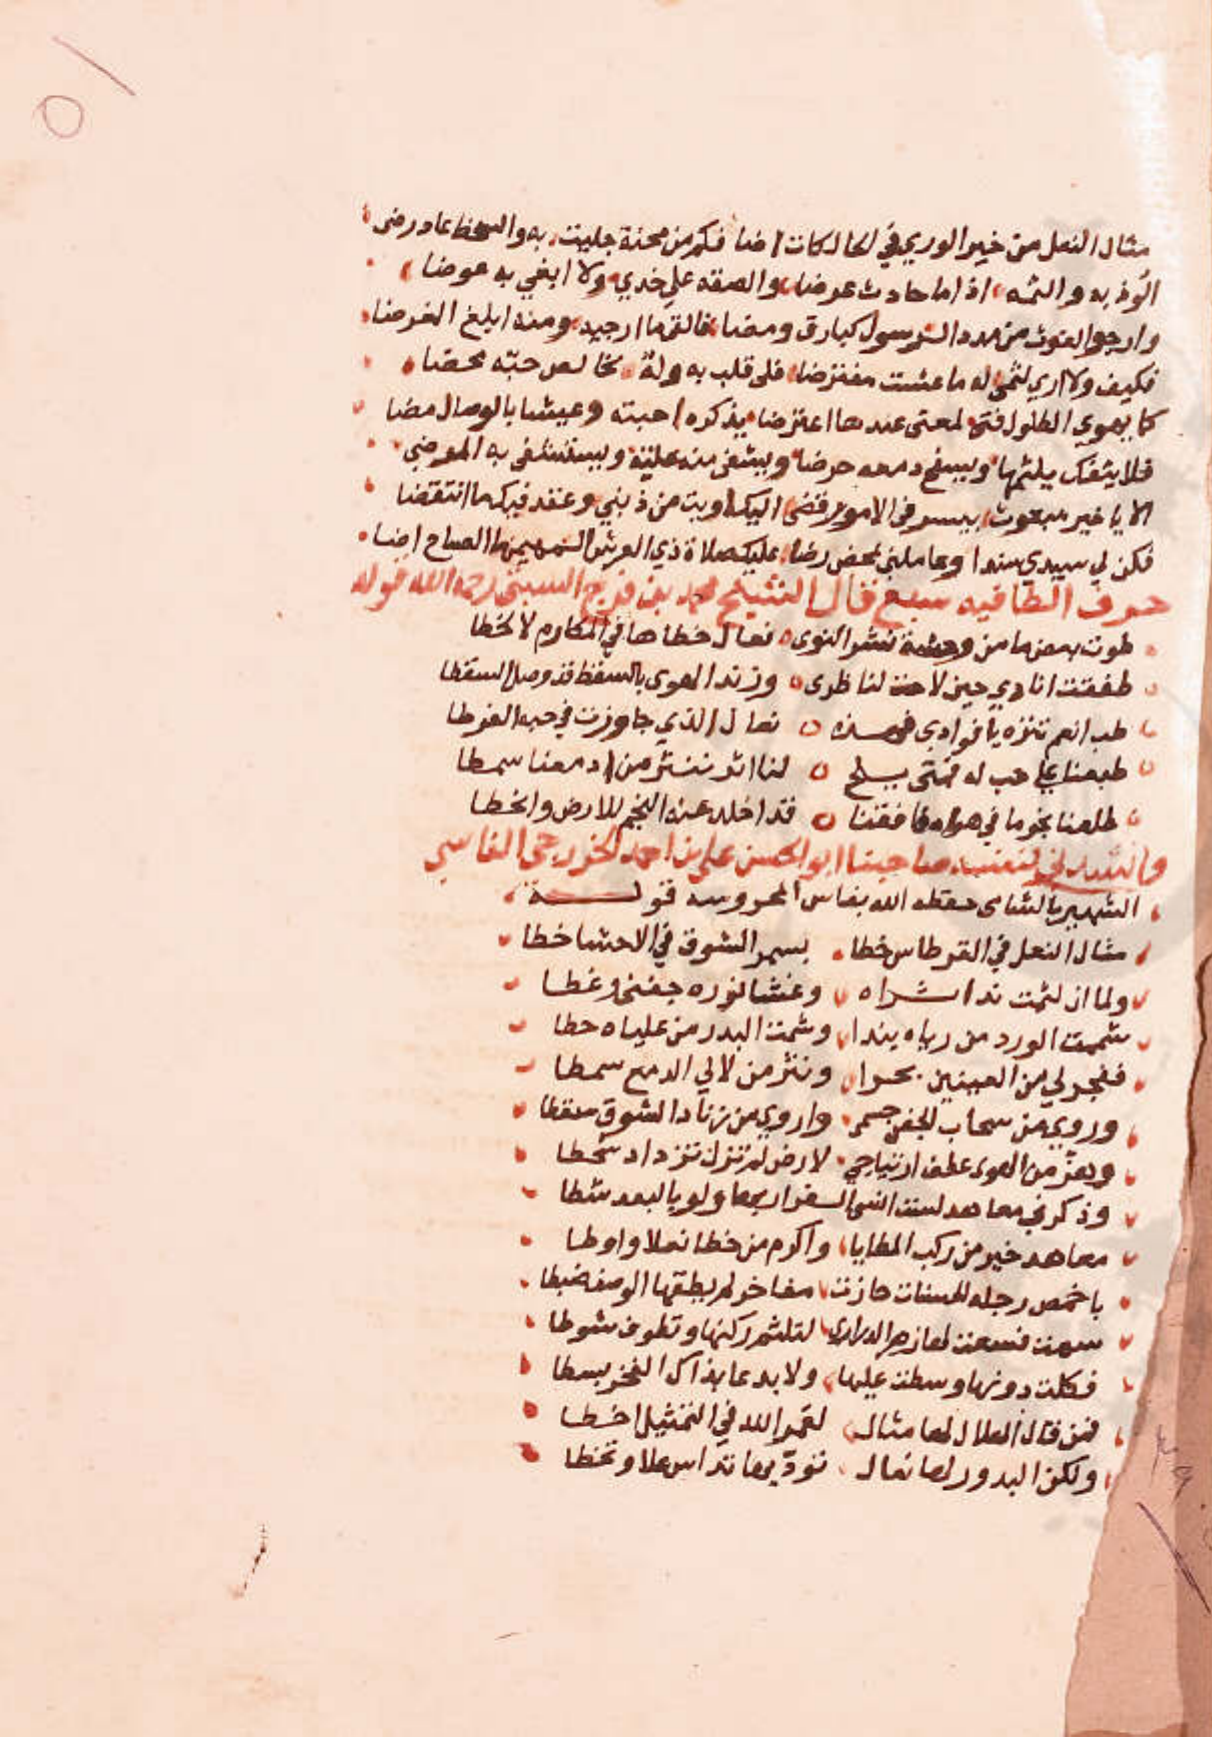 مثال النعل من خير الوري في لحالكات اضا فكم من محنة جليت به والسخط عاد رضى
الوذ به والثمه اذا ما حادث عرضا والصقه علي خدي ولا ابغي به عوضا
وارجوا الغوث من مدد الرسول كبارق ومضا فالقي ما ارجيه ومنه ابلغ الغرضا
فكيف ولا اري لثمي له ما عشت مفترضا فلي قلب به وله بخالص حبه محضا
كما يهوي الطلول فتى لمعنى عندها اعترضا يذكره احبته وعيشا بالوصال مضا
فلا ينفك يلثمها ويسفح دمعه حرضا ويشفي منه علته ويستشفي به المرضي
الا يا خير مبعوث بيسر في الامور قضى اليك اوبت من ذنبي وعقد فيك ما انتقضا
فكن لي سيدي سندا وعاملني بمحض رضا عليك صلاة ذي العرش المهيمن ما الصباح اضا
حرف الطا فيه سبع قال الشيخ محمد بن فرج السبتي رحمه الله قوله
طوت بعض ما من وحشة نشر النوى نعال خطاها في المكارم لا تخطا
طفقت انادي حين لاحت لناظري وزند الهوى بالسقط قد وصل السقطا
طب انعم تنزه يا فوادي فهذه نعال الذي جاوزت في حبه الفرطا
طبعنا علي حب له فمتى يلح لنا اثر ننثر من ادمعنا سمطا
طلعنا نجوما في هواه فافقنا قد اخلد عنه النجم للارض وانحطا
وانشدني لنفسه صاحبنا ابو الحسن علي بن احمد الخزرجي الفاسي
الشهير بالشامى حفظه الله بفاس المحروسه قوله
مثال النعل في القرطاس خطا بسمر الشوق في الاحشا خطا
ولما ان لثمت ندا شراه وغشا نوره جفني وغطا
شممت الورد من رياه يندا وشمت البدر من علياه حطا
ففجر لي من العينين بحرا ونثر من لالي الدمع سمطا
وروي من سحاب الجفن جسمي واروي من زناد الشوق سقطا
وهز من الهوى عطف ارتياحي لارض لم تزل تزداد شحطا
وذكرني معاهد لست انسى السفرا بها ولو بالبعد شطا
معاهد خير من ركب المطايا واكرم من خطا نعلا واوطا
باخمص رجله للسنات حازت مفاخر لم يطقها الوصف ضبطا
سمت فسعت لها زهر الدراري لتلثم ركنها وتطوف شوطا
فكلت دونها وسطت عليها ولا بدعا بذاك الفخر بسطا
فمن قال الهلال لها مثال لعمر الله في التمثيل اخطا
ولكن البدور لها نعال تود بها تداس علا وتخطا